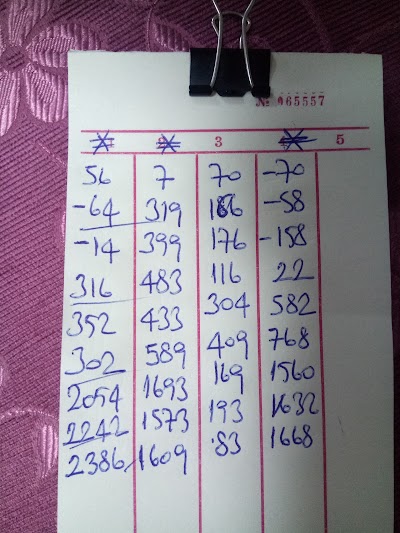 № 065557
3 5
56 7 70 -70
-64 319 186 -58
-14 399 176 -158
316 483 116 22
352 433 304 582
302 589 409 768
2054 1693 169 1560
2242 1573 193 1632
2386 1609 83 1668